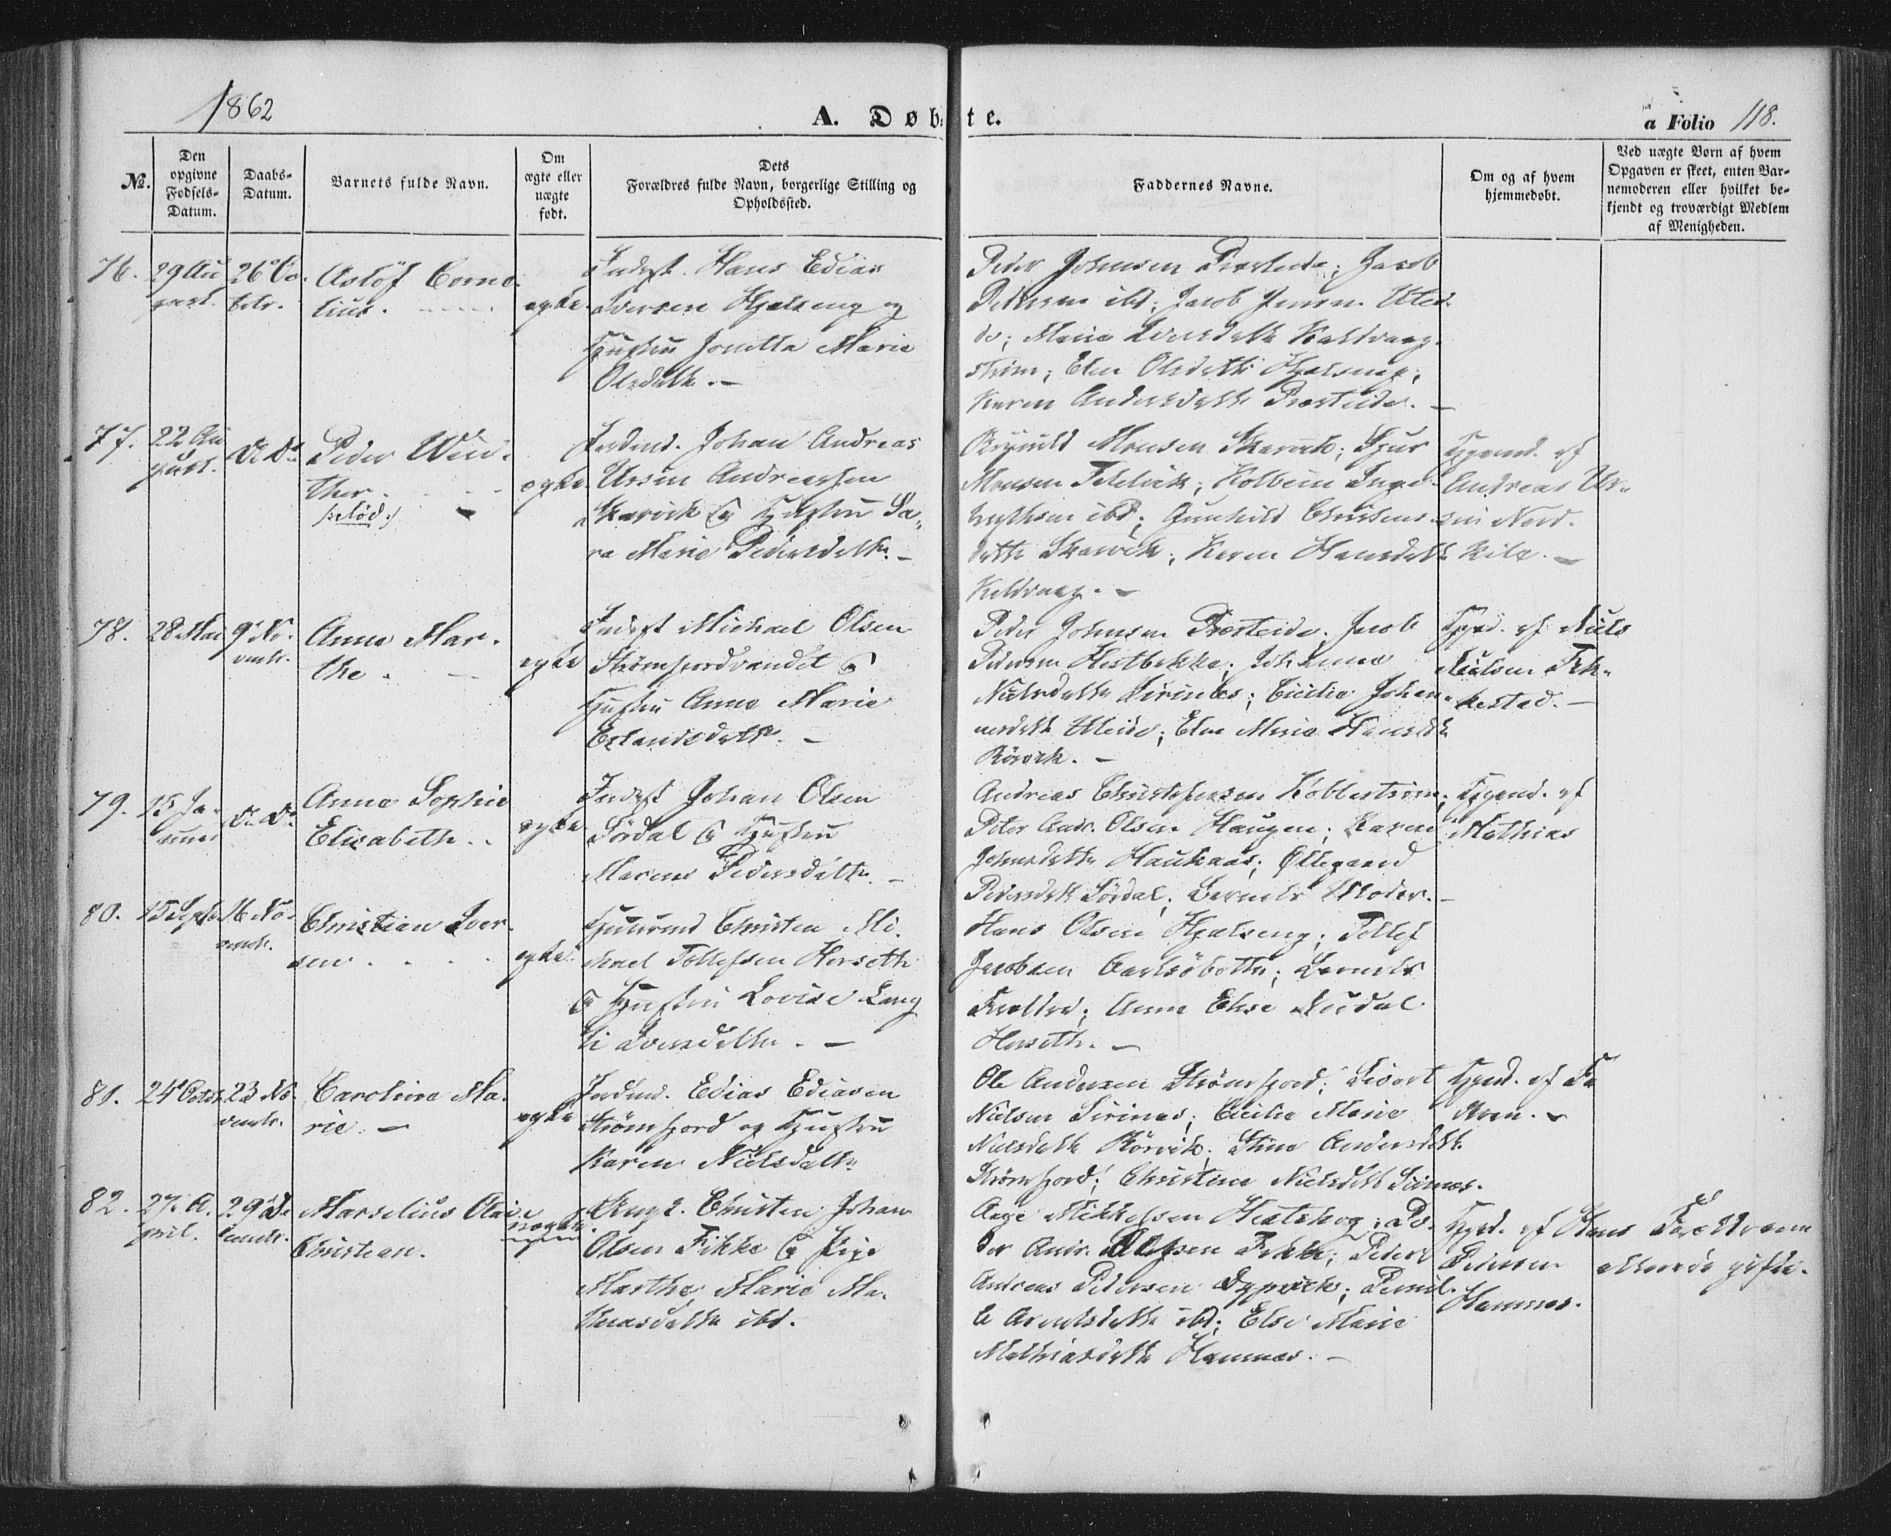 1862
A. Døbte.
a Folio 118.
No.
Den opgivne Fødsels-Datum.
Daabs-Datum.
Barnets fulde Navn.
Om ægte eller uægte født.
Dets Forældres fulde Navn, borgerlige Stilling og Opholdssted.
Faddernes Navne.
Om og af hvem hjemmedøbt.
Ved uægte Børn af hvem Opgaven er skeet, enten Barnemoderen eller hvilket bekjendt og troværdigt Medlem af Menigheden.
76.
29 Au
gust.
26 Oc
tobr.
Astöf Corne
lius.
ægte
Inderst. Hans Edias
Iversen Hjelseng og
Hustru Jonetta Marie
Olsdatter. —
Peder Johnsen Præsteide; Jacob
Pedersen ibd; Jacob Jensen
Marie Iversdatter Kaldvaag
Elen Olsdatter Hjelseng;
Karen Andersdatter Præsteide. —
77.
22 Au
gust.
Peder Win
ther.
ægte
Johan Andreas
Ursin Andreassen
Skarvik & Hustru Sa
ra Marie Pedersdatter. —
Monsen Skarvik; Sjur
Monsen Kolbein Inge
ibd; Gunhild Christens
datter Skarvik; Karen Hansdatter
Keldvaag. —
Hjemd. af
Andreas Ur
sin Nord
kil. —
78.
28 Mai
9 No
vembr.
Anne Mar
the.
ægte
Inderst Michael Olsen
Strømfjordvandet &
Hustru Anne Marie
Erlandsdatter. —
Peder Johnsen Præsteide; Jacob
Pedersen Hestbakke; Johanna
Nielsdatter Sirines; Cicilie Johan
nesdatter Uteide; Elen Marie Hansdt
Rörvik. —
Hjemd. af Niels
Nielsen
kestad. —
79.
15 Ja
nuar
Anne Sophie
Elisabeth.
ægte
Inderst Johan Olsen
Sördal & Hustru
Maren Pedersdatter. —
Andreas Christophersen Kobbertstrøm;
Peter Andr. Olsen Haugen; Karen
Johnsdatter Haukaas; Øllegaard
Pedersdatter Sördal; Barnets Moder. —
Hjemd. af
Mathias
80.
15 Septr
16 No
vembr.
Christian Iver
sen.
ægte
Christen Mi
chael Tollefsen Horseth
& Hustru Lovise Lang
Iversdatter. —
Hans Olsen Hjelseng; Tollef
Jacobsen Barnets
Forældre; Anne Elise
Horseth. —
81.
24 Octbr
23 No
vembr.
Caroline Ma
rie. —
ægte
Edias Ediasen
Strømfjord og Hustru
Karen Nielsdatter
Ole Andersen Strømfjord; Sivert
Nielsen Sirines; Cicilie Marie
Nielsdatter Rörvik; Stine Andersdatter
Strømfjord; Christine Nielsdtr Sirines.
Hjemd. af Fa
deren. —
82.
27 A
pril.
29 De
cembr.
Marselius Olai
Christian.
uægte
Ungk. Christen Johan
Olsen Fikke & Pige
Marthe Marie Ma
thiasdatter ibd.
Aage Mikkelsen Pe
der Andr. Olsen Fikke; Peder
Andreas Pedersen Dypvik; Pernil
le Arentsdatter ibd; Else Marie
Mathiasdatter Hamnes. —
Hjemd. af Hans
Pedersen
Hamnes.
Forældrene
allerede gifte.